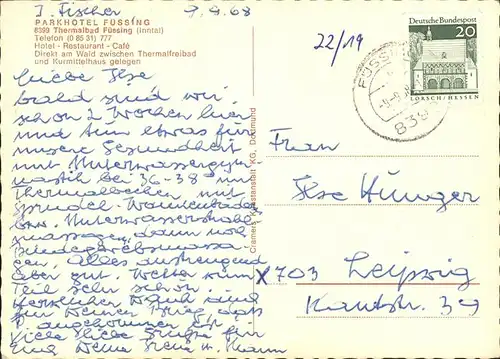 I. Fischer 9.9.68
PARKHOTEL FÜSSING
8399 Thermalbad Füssing (Inntal)
Telefon (0 85 31) 777
Hotel - Restaurant - Café
Direkt am Wald zwischen Thermalfreibad
und Kurmittelhaus gelegen
22/19
Deutsche Bundespost
20
LORSCH/HESSEN
FÜSS
839
Liebe Ilse
bald sind wir
schon 2 Wochen hier
und tun etwas für
unsere Gesundheit
mit Unterwassergym
nastik bei 36-38° im
Thermalbecken mit
Sprudel- Wannenbäder
bzw. Unterwasserstrahl
massagen, dann noch
Bindegewebsmassa
gen. Alles anstrengend
aber gut. Wetter zum
Teil sehr schön.
Herzlichen Dank auch
für Deinen Brief, das
P. angekommen ist
Viele liebe Grüße für
Euch Deine Irene u. Mann
Cramers Kunstanstalt KG, Dortmund
Frau
Ilse Hünger
X 703 Leipzig
Kantstr. 39